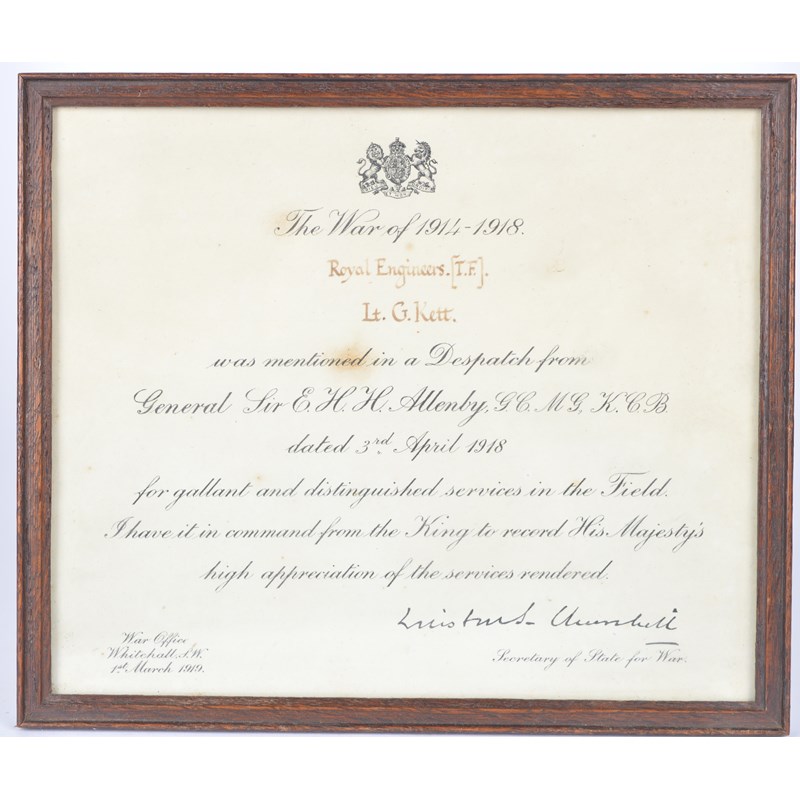 The War of 1914-1918.
Royal Engineers.[T.F.].
Lt. G. Kett.
was mentioned in a Despatch from
General Sir E. H. H. Allenby, G.C.M.G, K.C.B
dated 3rd April 1918
for gallant and distinguished services in the Field.
I have it in command from the King to record His Majesty's
high appreciation of the services rendered.
Winston S. Churchill
War Office
Whitehall, S.W.
1st March 1919.
Secretary of State for War.